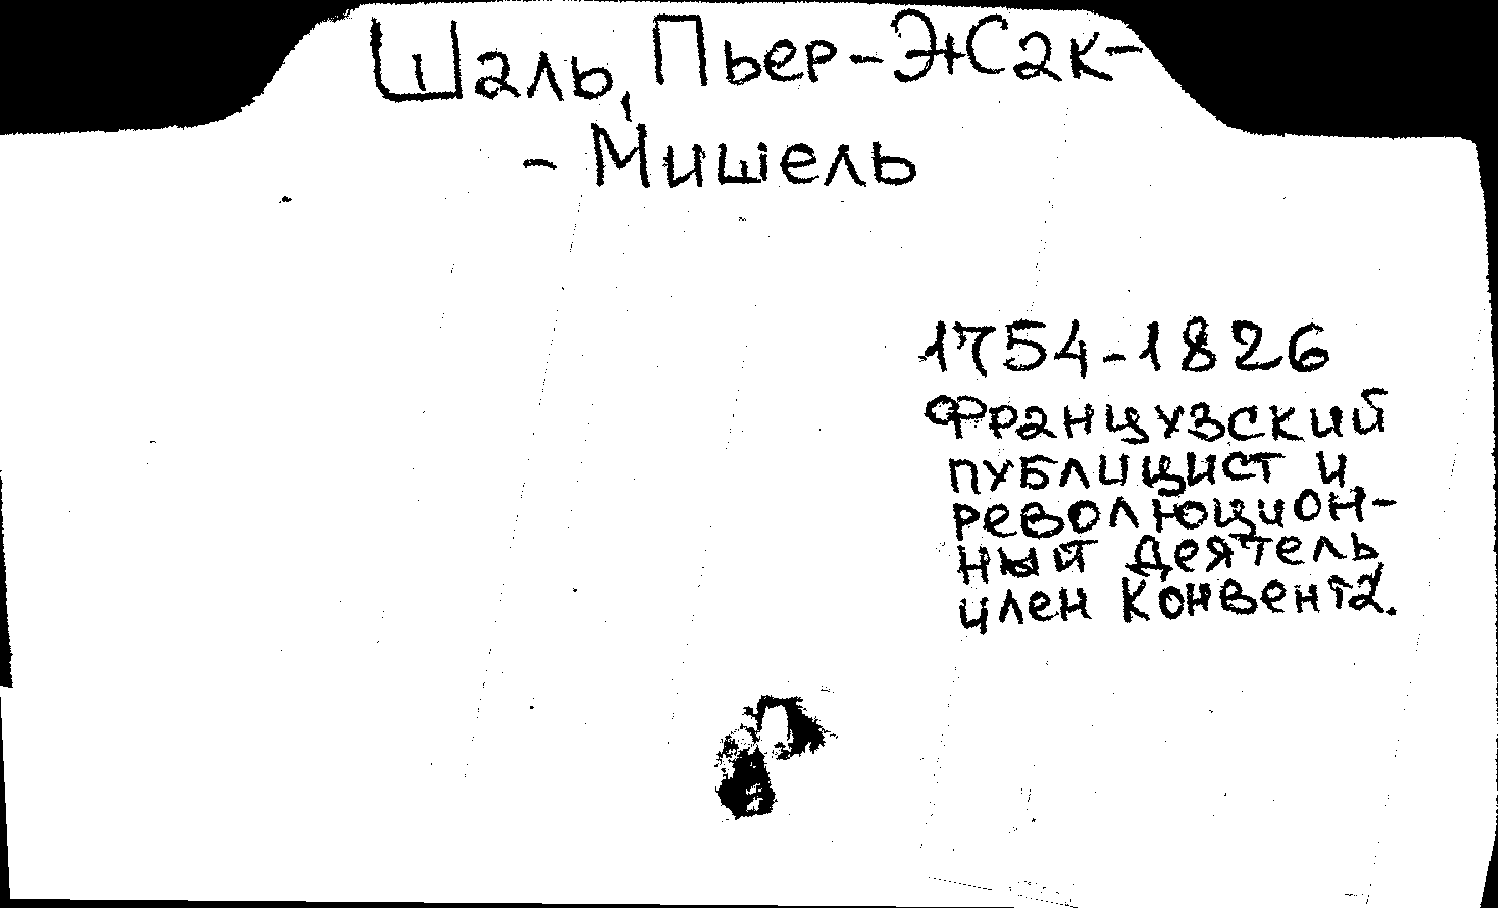 Шаль, Пьер-Жак-
- Мишель
1754-1826
Французский
публицист и
революцион-
ный деятель,
член Конвента.